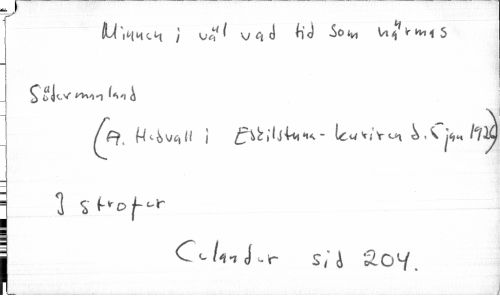 Minnen i väl vad tid som närmas
Södermanland
(A. Hedvall i Eskilstuna-kuriren d. 5 jan 1926)
3 strofer
Celander sid 204.